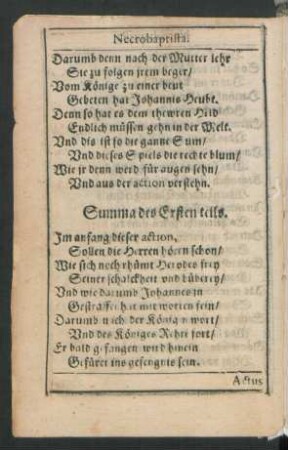 Necrobaptista.
Darumb denn nach der Mutter lehr
Sie zu folgen jrem beger/
Vom Könige zu einer beut
Gebeten hat Johannis Heubt.
Denn so hat es dem thewren Hild
Endlich müssen gehn in der Welt.
Vnd dis ist so die gantze Sum/
Vnd dieses Spiels die rechte blum/
Wie jr denn werd für augen sehn/
Vnd aus der action verstehn.
Summa des Ersten teils.
Im anfang dieser action,
Sollen die Herren hörn schon/
Wie sich noch rhümt Herodes frey
Seiner schalckheit vnd büberey/
Vnd wie darumb Johannes in
Gestraffet hat mit worten fein/
Darumb nach der König
Vnd des Königes Rehte fort/
Er bald gefangen wird hinein
Gefüret ins gefengnis sein.
Actus